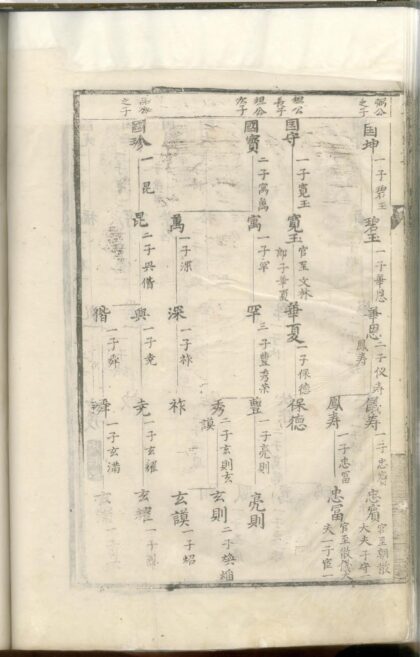 弼公之子
国坤
一子碧玉
碧玉
一子華恩
華恩
二子仪寿鳳寿
儀寿
一子忠賓
忠賓
官至朝散大夫子守一
鳳寿
一子忠冨
忠冨
官至散儀大夫一子宦一
坦公長子
国守
一子寛玉
寛玉
官至文林郎子華夏
華夏
一子保德
保德
坦公次子
國寶
二子寓萬
寓
一子罕
罕
三子豐秀栄
豐
一子亮則
亮則
秀
二子玄則玄謨
玄則
二子
萬
一子深
深
一子祚
祚
玄謨
一子蛁
公之子
國珍
一昆
昆
二子興偕
興
一子尭
尭
一子玄耀
玄耀
偕
一子舜
舜
一子玄滿
玄